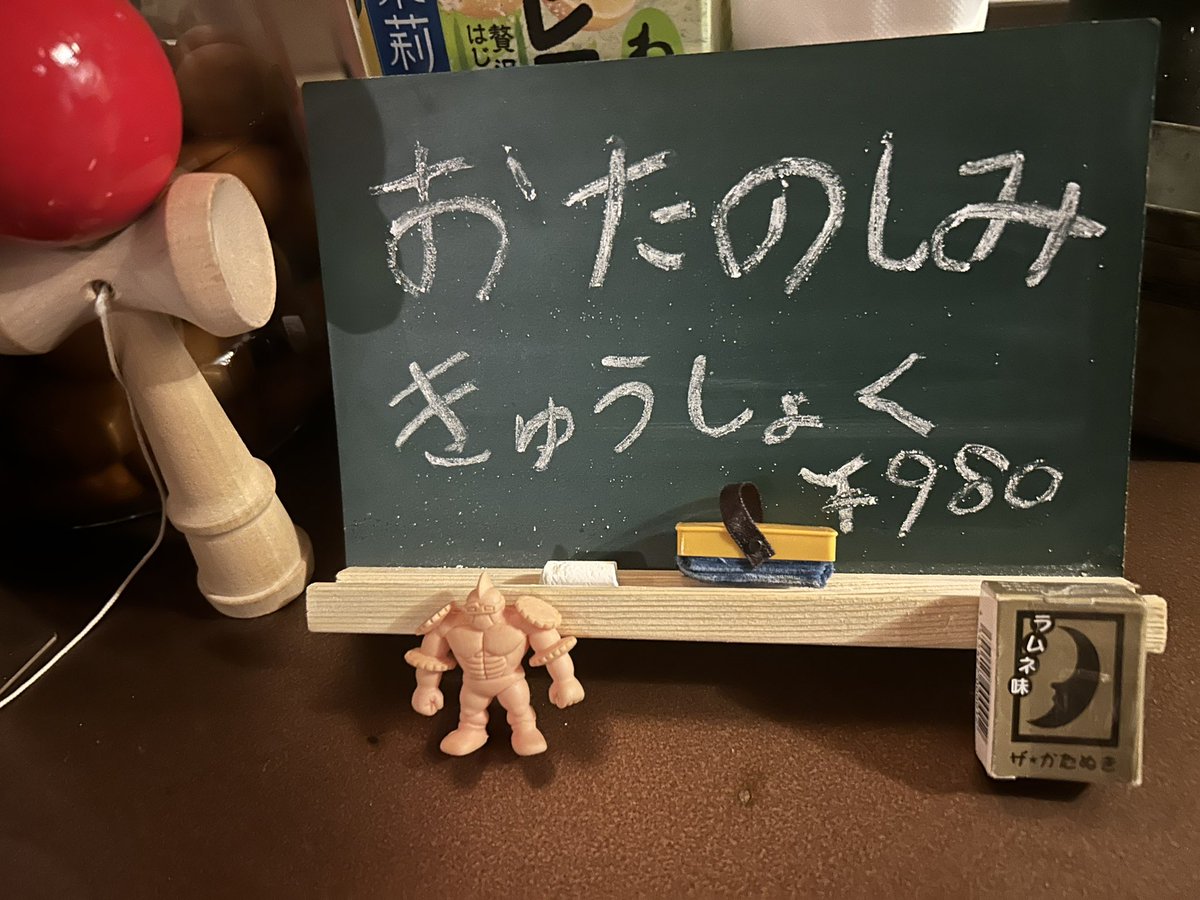 莉
贅沢
はじ
わ
おたのしみ
きゅうしょく
¥980
ラムネ味
ザ・かたぬき